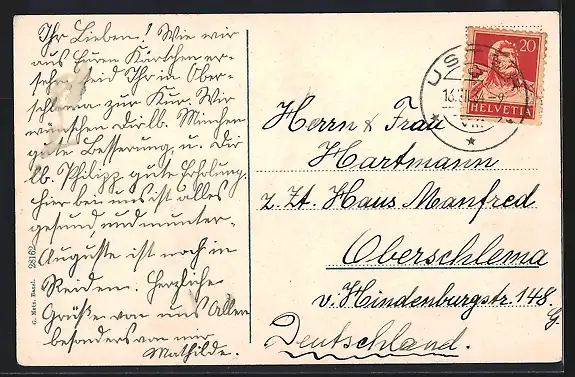 Ihr Lieben! Wie wir
aus Euren Kärtchen er-
sehen, seid Ihr in Ober-
schlema zur Kur. Wir
wünschen Dir lb. Minchen
gute Besserung, u. Dir
lb. Philipp gute Erholung.
Hier bei uns ist alles
gesund und munter.
Auguste ist noch in
Herzliche
Grüße von uns Allen
besonders von mir
Mathilde.
28162
G. Metz, Basel.
20
HELVETIA
USTER
Herrn & Frau
Hartmann
z. Zt. Haus Manfred
Oberschlema
v. Hindenburgstr. 148
Deutschland.